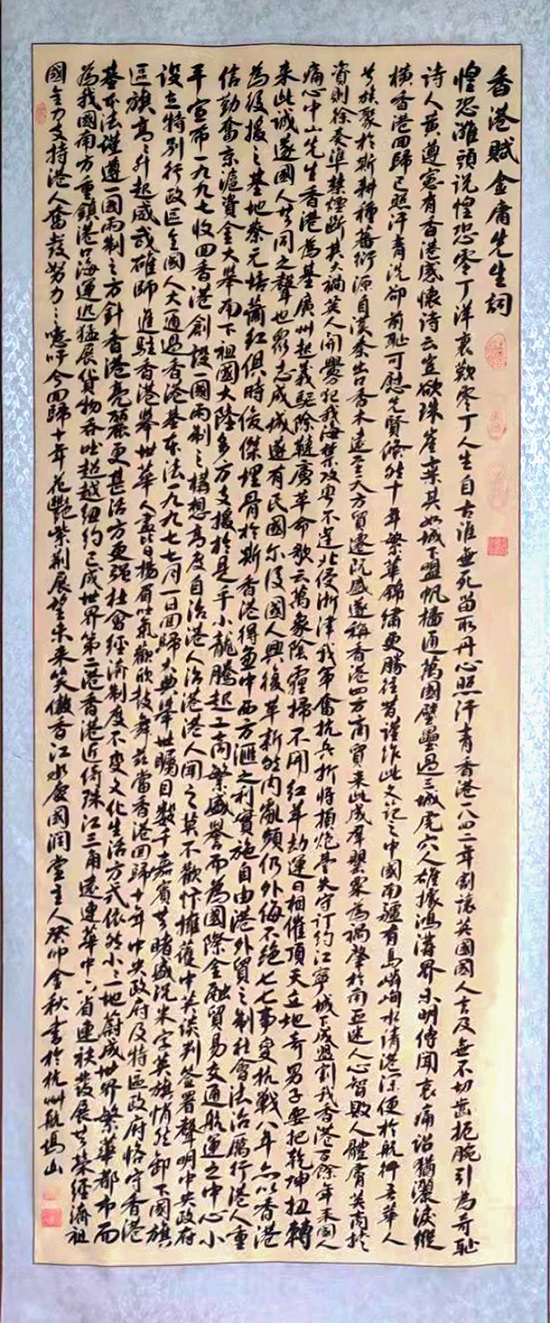 香港賦金庸先生詞
惶恐灘頭說惶恐零丁洋裏歎零丁人生自古誰無死留取丹心照汗青香港一八四二年割讓英國國人言及無不切齒扼腕引為奇恥
詩人黃遵憲有香港感懷詩云豈欲珠崖棄其如城下盟帆檣通萬國壁壘逼三城虎穴人雄據鴻溝界未明傳聞哀痛詔猶灑淚縱
橫香港回歸已照汗青洗卻前恥可慰先賢倏然十年繁華錦繡更勝往昔謹作此文記之中國南疆有島嶼焉水清港深便於航行吾華人
世族聚於斯耕種蕃衍源自漢秦出香木遠至天方貿遷既盛遂稱香港四方商賈來此成羣罌粟為禍肇於南亞迷人心智敗人體膚英商於
資則徐奏準禁煙斷其大禍英人開釁犯我海禁攻粵不逞北侵浙津我軍奮抗兵折將損炮臺失守訂約江寧城下成盟割我香港百餘年來國人
痛心中山先生香港為基廣州起義驅除韃虜革命歌云萬象陰霾掃不開紅羊劫運日相催頂天立地奇男子要把乾坤扭轉
來此誠遂國人共同之聲也眾志成城遂有民國尔後國人興復革新然内亂頻仍外侮不絕七七事變抗戰八年亦以香港
為後援之基地蔡元培蕭紅俱時俊傑埋骨於斯香港得兼中西方匯之利實施自由港外貿之制社會法治厲行港人重
信勤奮京滬資金大舉南下祖國大陸多方支援於是乎小龍騰起工商繁盛譽而為國際金融貿易交通航運之中心小
平宣布一九九七收回香港創設一國兩制之構想高度自治港人治港港人聞之莫不歡忭擁護中英談判簽署聲明中央政府
設立特別行政區全國人大通過香港基本法一九九七七月一日回歸大典舉世矚目數千嘉賓共睹盛況米字英旗悄然卸下國旗
區旗高々升起威武雄師進駐香港舉世華人盡皆揚眉吐氣歡欣鼓舞茲當香港回歸十年中央政府及特區政府恪守香港
基本法謹遵一國兩制之方針香港亮麗更甚活力更強社會經濟制度不變文化生活方式依然小々一地蔚成世界繁華都市而
為我國南方重鎮港口海運迅猛展貨物吞吐超越紐約已成世界第二港香港近倚珠江三角遠連華中六省連袂發展共榮經濟祖
國全力支持港人奮發努力々噫吁今回歸十年花艷紫荊展望未來笑傲香江水慶國潤堂主人癸卯金秋書於杭州龍塢山